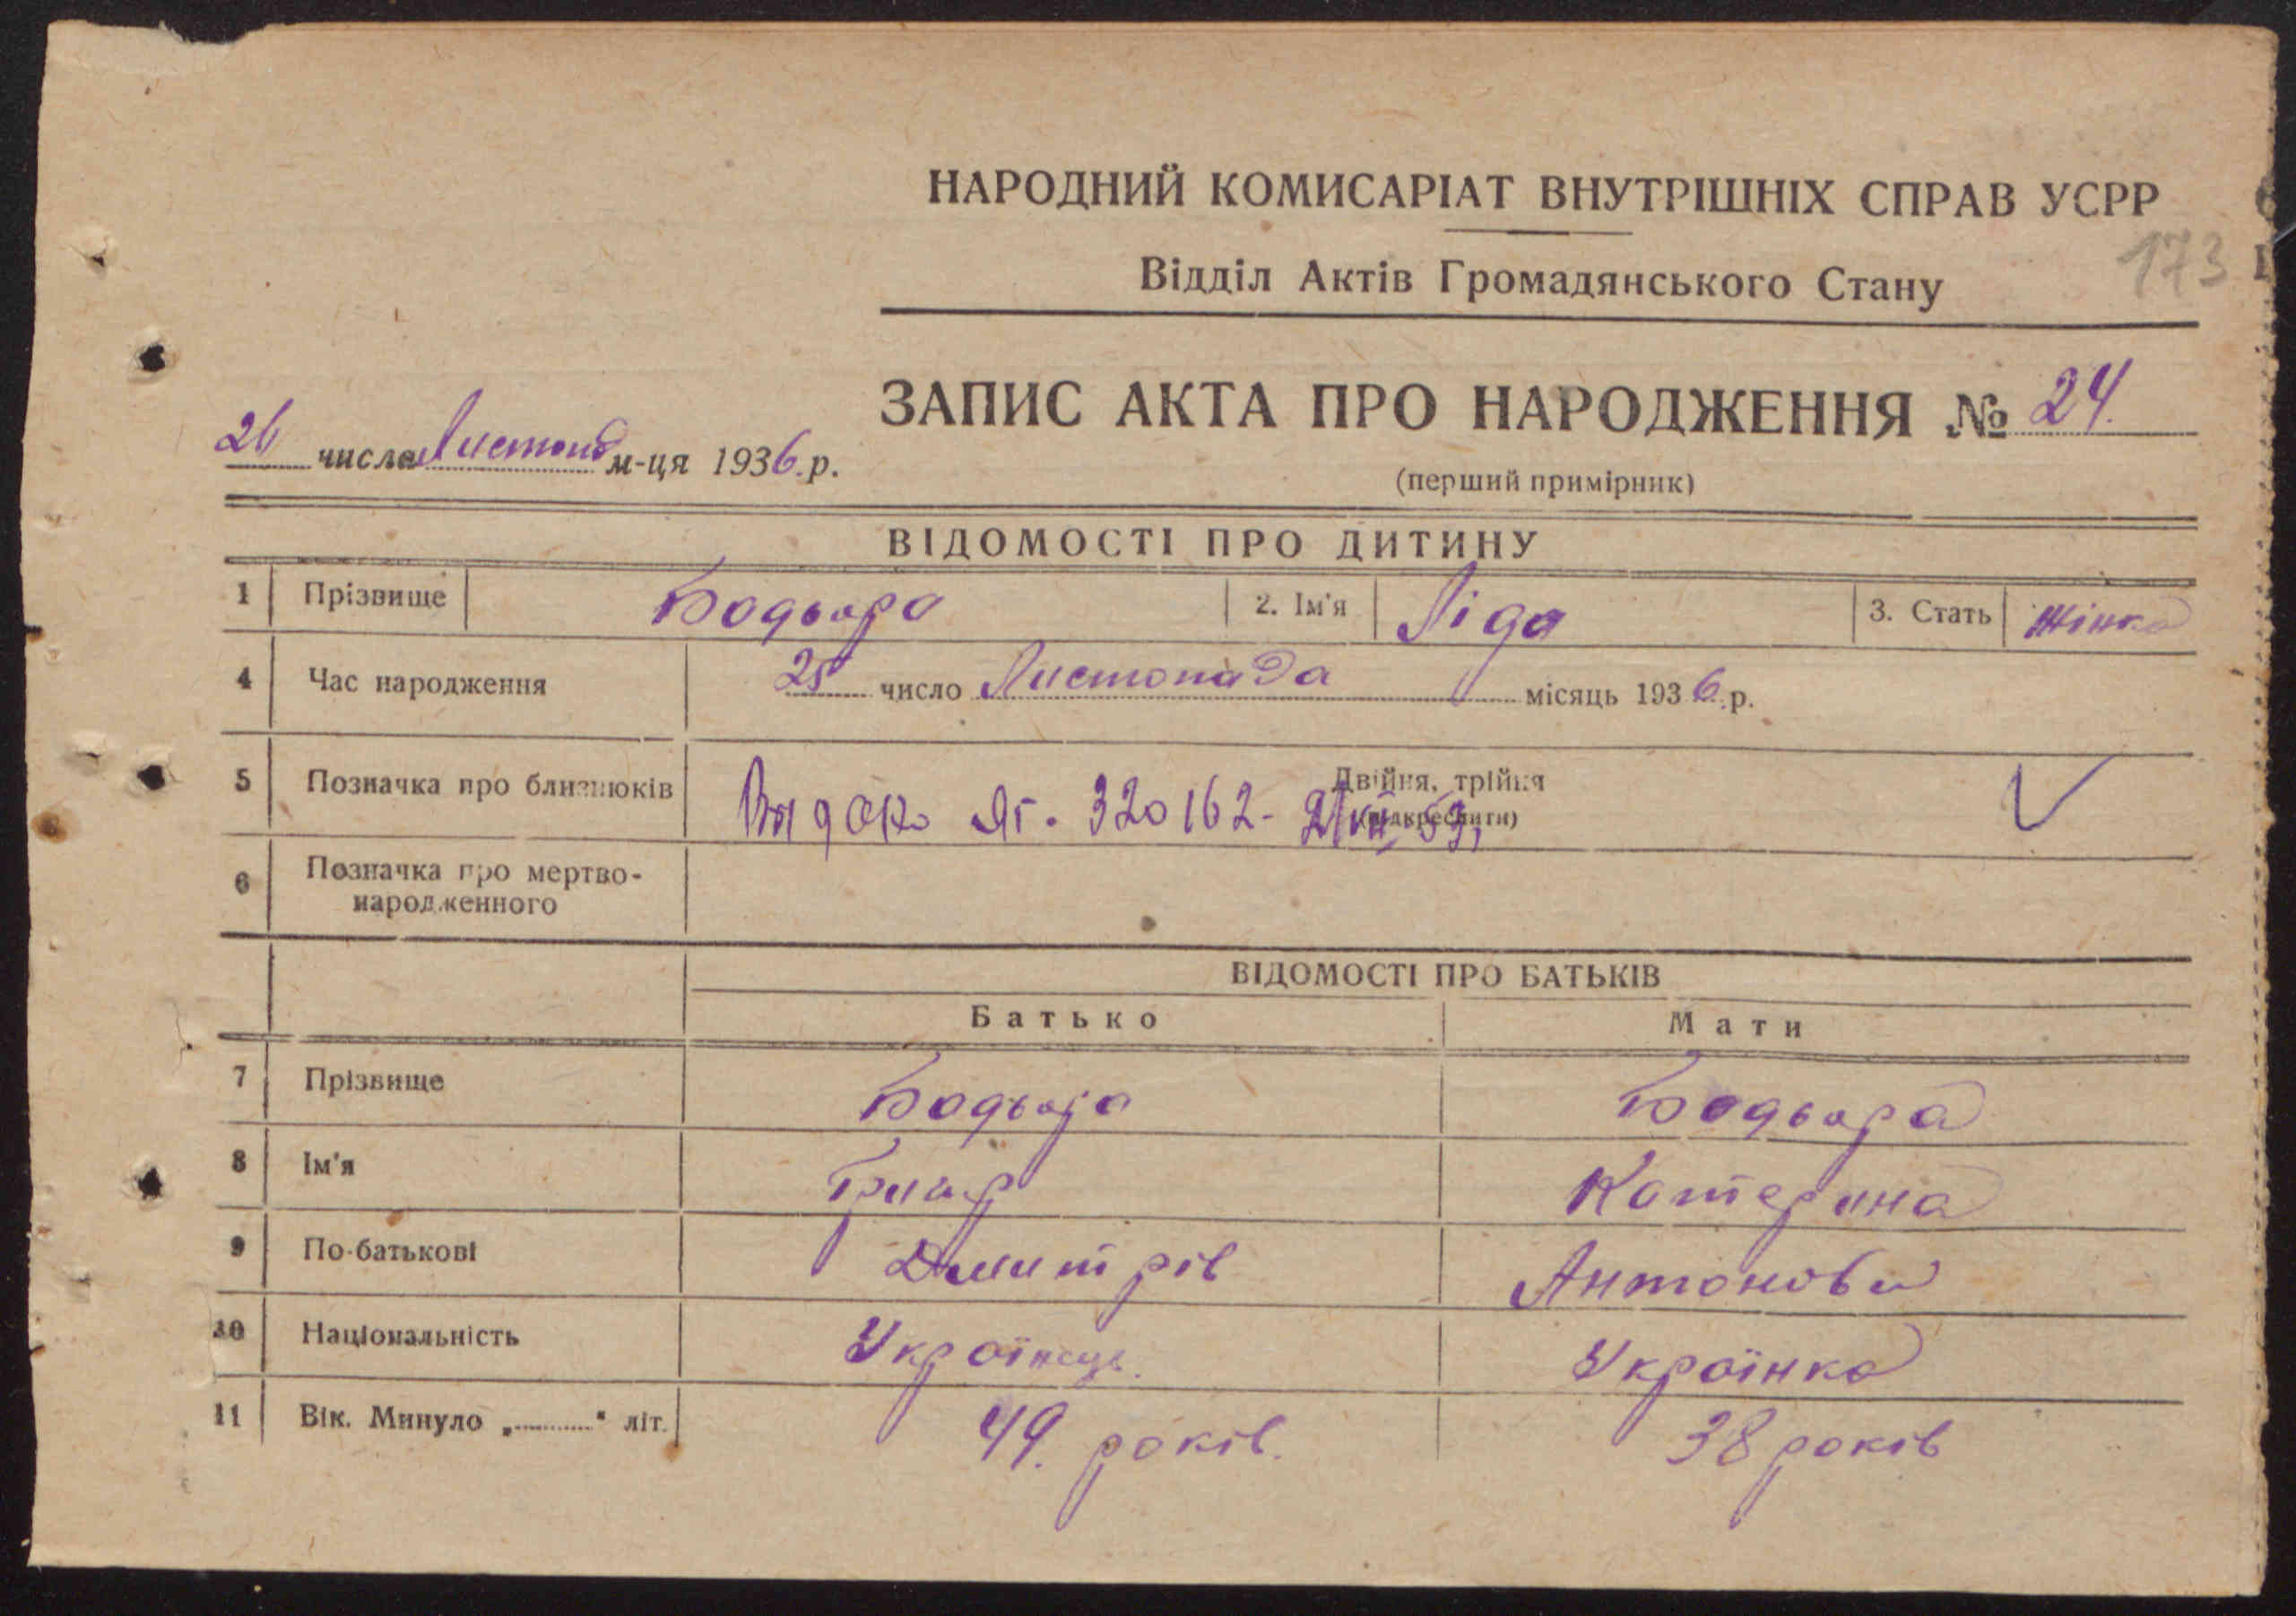 НАРОДНИЙ КОМИСАРІАТ ВНУТРІШНІХ СПРАВ УСРР
173
Відділ Актів Громадянського Стану
ЗАПИС АКТА ПРО НАРОДЖЕННЯ № 24.
26 числа Листопад м-ця 1936 р.
(перший примірник)
ВІДОМОСТІ ПРО ДИТИНУ
1 Прізвище Бодьора 2. Ім'я Ліда 3. Стать Жінка
4 Час народження 25 число Листопада місяць 1936 р.
5 Позначка про близнюків Двійня, трійня
(підкреслити)
320162-
6 Позначка про мертво-
народженного
ВІДОМОСТІ ПРО БАТЬКІВ
Батько Мати
7 Прізвище Бодьора Бодьора
8 Ім'я Катерина
9 По-батькові Дмитрів Антонови
10 Національність Українець. Українка
11 Вік. Минуло „............“ літ. 49. років. 38 років